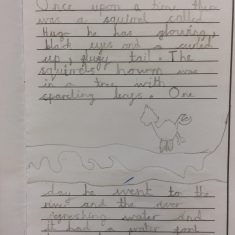 Once upon a time there
was a squirrel called
Hugo he has glowing,
black eyes and a curled
up, flufy tail. The
squirrels howm was
in a tree with
sparding leavs. One
day he went to the
river and the river
refreshing water and
it had a water font